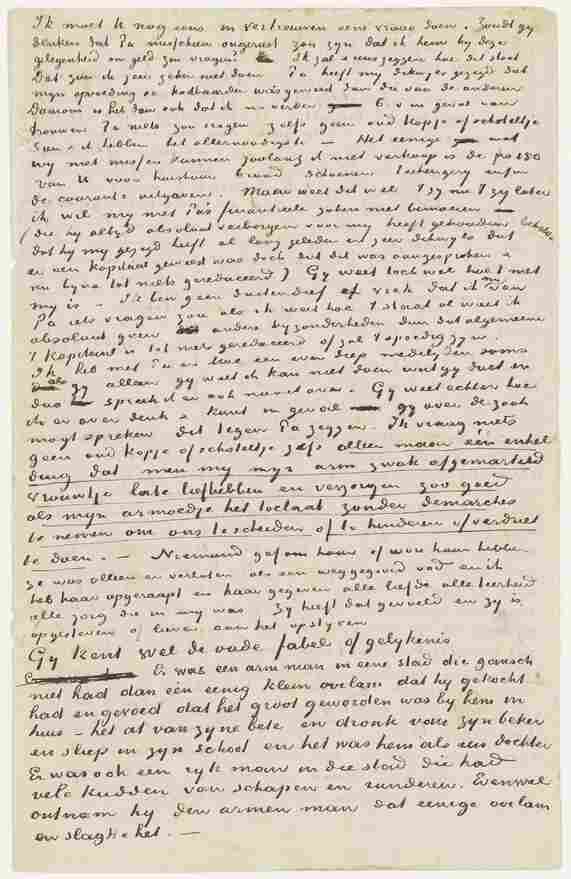 Ik moet U nog eens in vertrouwen eene vraag doen. Zoudt gy
denken dat Pa misschien ongerust zou zyn dat ik hem by deze
gelegenheid om geld zou vragen? Ik zal U eens zeggen hoe dat staat
Dat zou ik zeer zeker niet doen Pa heeft my dikwyls gezegd dat
myn opvoeding &c kostbaarder was geweest dan die van de anderen
Daarom is het dan ook dat ik nu verder b.v. in geval van
trouwen Pa niets zou vragen zelfs geen oud kopje of schoteltje
Sien & ik hebben het allernoodigste – Het eenige wat
wy niet missen kunnen zoolang ik niet verkoop is de fs 150
van U voor huishuur brood schoenen teekengerij enfin
de courante uitgaven. Maar weet dit wel
ik wil my met Pa's financieele zaken niet bemoeien
(die hy altyd absoluut verborgen voor my heeft gehouden behalve
dat hy my gezegd heeft al lang geleden en zeer dikwyls dat
er een kapitaal geweest was doch dat dit was aangesproken &
en byna tot niets gereduceerd) Gy weet toch wel hoe 't met
my is – Ik ben geen duitendief of vrek dat ik nu van
Pa iets vragen zou als ik weet hoe 't staat al weet ik
absoluut geen andere byzonderheden dan dat algemeene
't kapitaal is tot niets gereduceerd of zal 't spoedig zyn.
Ik heb met Pa en Moe een even diep medelyden soms
als gy alleen gy weet ik kan niet doen wat gy doet en
dus spreek ik er ook niet over. Gy weet echter hoe
ik er over denk & kunt in geval gy over de zaak
mogt spreken dit tegen Pa zeggen. Ik vraag niets
geen oud kopje of schoteltje zelfs alleen maar één enkel
ding dat men my myn arm zwak afgemarteld
vrouwtje late liefhebben en verzorgen zoo goed
als myn armoedje het toelaat zonder demarches
te nemen om ons te scheiden of te hinderen of verdriet
te doen. – Niemand gaf om haar of wou haar hebben
ze was alleen en verlaten als een weggegooid vod en ik
heb haar opgeraapt en haar gegeven alle liefde alle teerheid
alle zorg die in my was Zy heeft dat gevoeld en zy is
opgeleven of liever aan het opleven
Gy kent wel de oude fabel of gelykenis
Er was een arm man in eene stad die gansch
niet had dan een eenig klein ooilam dat hy gekocht
had en gevoed dat het groot geworden was by hem in
huis – het at van zyne bete en dronk van zyn beker
en sliep in zyn schoot en het was hem als een dochter
Er was ook een ryk man in die stad die had
vele kudden van schapen en runderen. Evenwel
ontnam hy den armen man dat eenige ooilam
en slagtte het. –